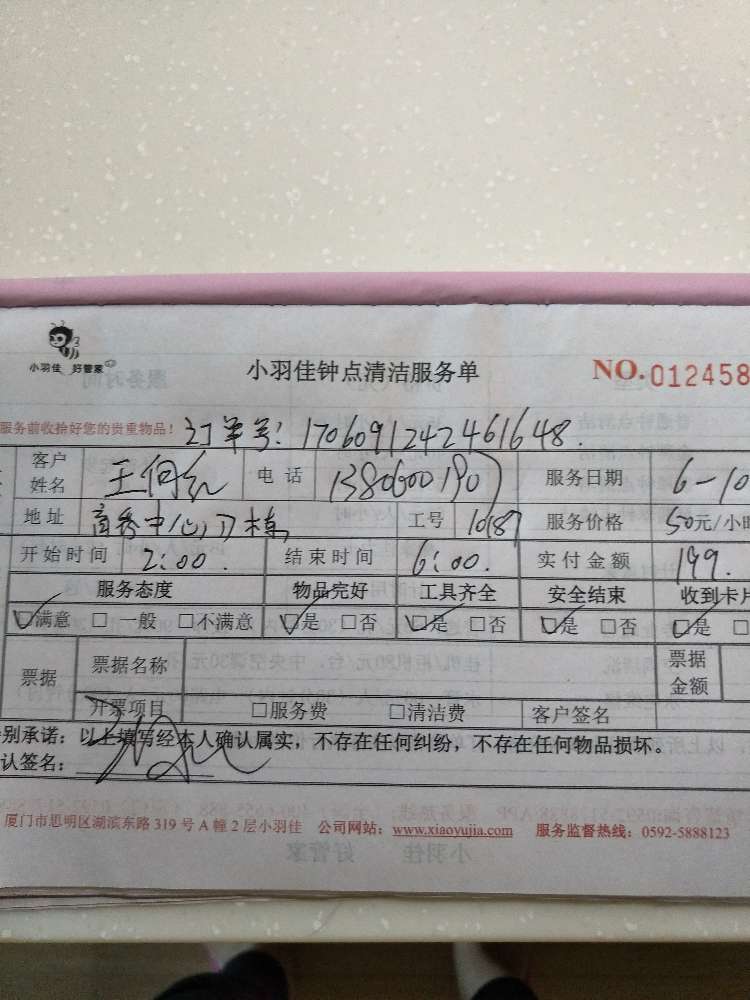 小羽佳 好管家
小羽佳钟点清洁服务单
NO.012458
服务前收拾好您的贵重物品！ 订单号：1706091242461648.
客户姓名 王何红 电话 13806001907 服务日期 6-10
地址 商务中心 栋 工号 10187 服务价格 50元/小时
开始时间 2:00. 结束时间 6:00. 实付金额 199.
服务态度 物品完好 工具齐全 安全结束 收到卡片
☑满意 □一般 □不满意 ☑是 □否 ☑是 □否 ☑是 □否 ☑是 □
票据 票据名称 票据金额
开票项目 □服务费 □清洁费 客户签名
别承诺：以上填写经本人确认属实，不存在任何纠纷，不存在任何物品损坏。
认签名：
厦门市思明区湖滨东路 319 号 A 幢 2 层小羽佳 公司网站：www.xiaoyujia.com 服务监督热线：0592-5888123